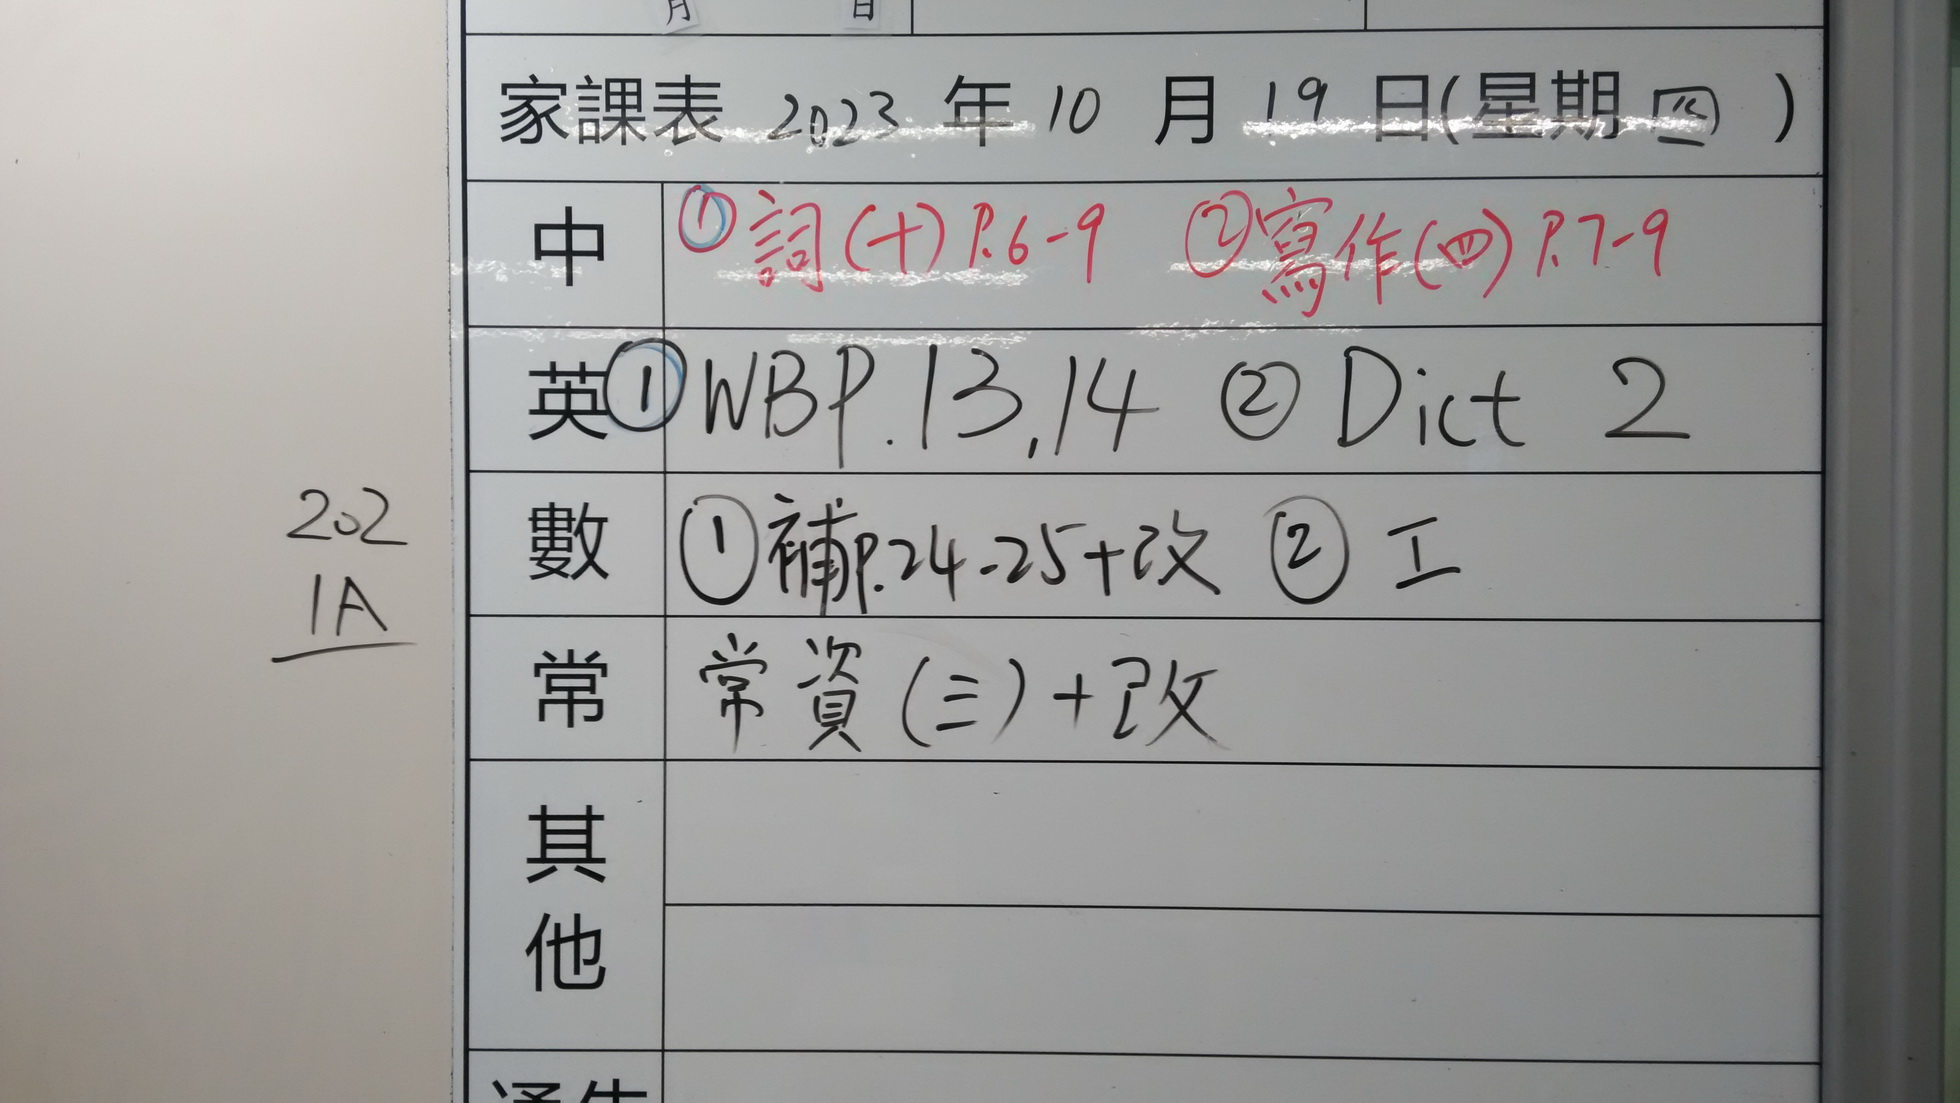 月 日
家課表 2023 年 10 月 19 日(星期 四 )
中 ①詞(十) P.6-9 ②寫作(四) P.7-9
英 ①WBP.13,14 ②Dict 2
202
1A
數 ①補P.24-25+改 ②工
常 常資(三)+改
其他
通告